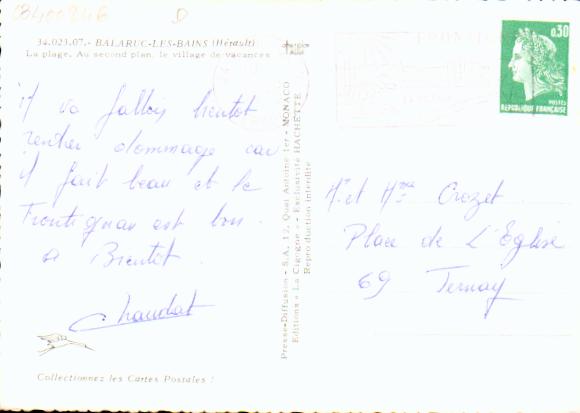 03400246 D
34.023.07.- BALARUC-LES-BAINS (Hérault)
La plage. Au second plan, le village de vacances
il va falloir bientot
rentrer dommage car
il fait beau et le
Frontignan est bon.
a Bientôt.
Chaudat
Collectionnez les Cartes Postales !
Presse-Diffusion - S.A. 12, Quai Antoine 1er - MONACO
Editions « La Cigogne » - Exclusivité HACHETTE
Reproduction interdite
0,30
POSTES
REPUBLIQUE FRANÇAISE
Mr et Mme Crozet
Place de L'Eglise
69 Ternay